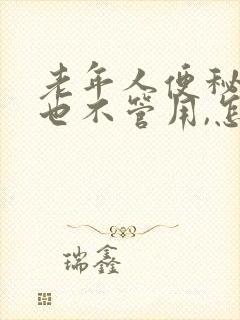 老年人便秘
也不管用,怎
瑞鑫